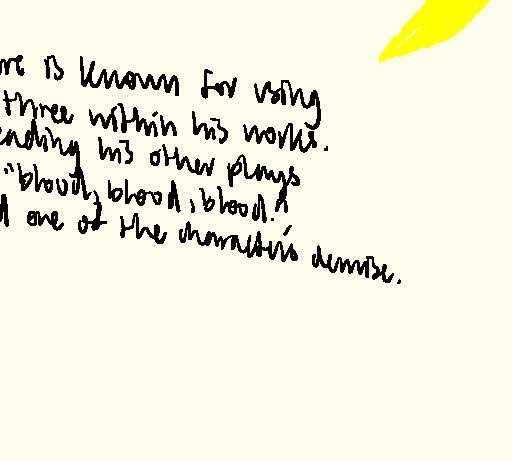 re is known for using
three within his works.
eading his other plays
"blood, blood, blood."
d one of the character's demise.